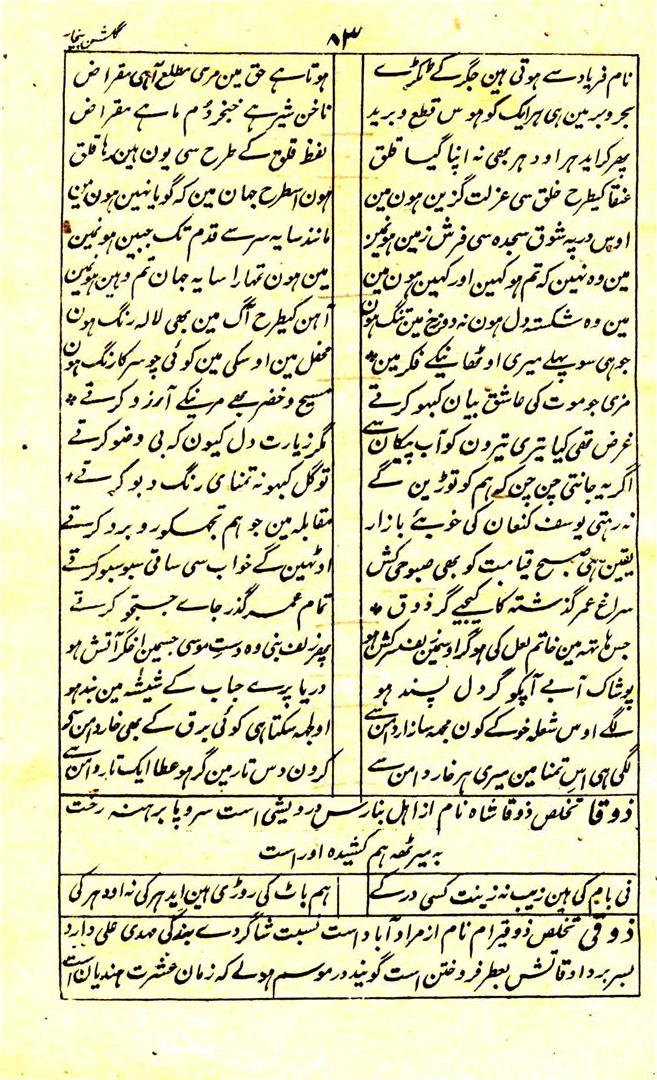 گلشن بیخار
۸۳
نام فریاد سے ہوتی ہین جگر کے ٹکڑے ہوتا ہے حق مین مری مطلع آہی مقراض
بحر و بر مین ہی ہر ایک کو ہوس قطع و برید ناخن شیر ہے خنجر دُم ماہے مقراض
پھر کر ایدہر اودہر بھی نہ اپنا گیا قلق لفظ قلق کے طرح سی یون ہین رہا قلق
عنقا کیطرح خلق سی عزلت گزین ہون مین ہون اسطرح جہان مین کہ گویا نہین ہون مین
اوس در پہ شوق سجدہ سی فرش زمین ہونمین مانند سایہ سر سے قدم تک جبین ہونمین
مین وہ نہین کہ تم ہو کہین اور کہین ہون مین مین ہون تمہارا سایہ جہان تم وہین ہونمین
مین وہ شکستہ دل ہون نہ دوزخ مین تنگ ہون آہن کیطرح آگ مین بھی لالہ رنگ ہون
جو ہی سو پہلے میری اوٹھانیکے فکر مین محفل مین اوسکی مین کوئی چوسر کا رنگ ہون
مزی جو موت کی عاشق بیان کبھو کرتے مسیح و خضر بھے مرنیکے آرزو کرتے
غرض تھی کیا تیری تیرون کو آب پیکان سے مگر زیارت دل کیون کہ بی وضو کرتے
اگر یہ جانتی چن چن کے ہم کو توڑین گے تو گل کبھو نہ تمنای رنگ و بو کرتے
نہ رہتی یوسف کنعان کی خوبئے بازار مقابلہ مین جو ہم تجھکو روبرو کرتے
یقین ہی صبح قیامت کو بھی صبوحی کش اوٹھین گے خواب سی ساقی سبو سبو کرتے
سراغ عمر گذشتہ کا کیجیے گر ذوق تمام عمر گذر جاے جستجو کرتے
جس ہاتھ مین خاتم لعل کی ہو گر اوسمین زلف سرکش ہو پھر زلف بنی وہ دست موسی جسمین اخگر آتش ہو
پوشاک آبے آپکو گر دل پسند ہو دریا پرے حباب کے شیشہ مین بند ہو
لگے اوس شعلہ خو کے کون مجھ سا زار دامن سے اولجھ سکتا ہی کوئی برق کے بھی خار دامن سے
لگی ہی اس تمنا مین میری ہر خار دامن سے کرون دس تار مین گر ہو عطا ایک تار دامن سے
ذوقا تخلص ذوقا شاہ نام از اہل بنارس درویشی است سر و پا برہنہ رخت
بہ میرٹھہ ہم کشیدہ اور است
نی بام کی ہین زیب نہ زینت کسی در کے ہم باٹ کی روڑی ہین ایدہر کی نہ اودہر کی
ذوقی تخلص ذوقیرام نام از مراد آباد است نسبت شاگردے بندگی مہدی علی دارد
بسر برد اوقاتش بعطر فروختن است گویند در موسم ہولے کہ زمان عشرت ہندیان است